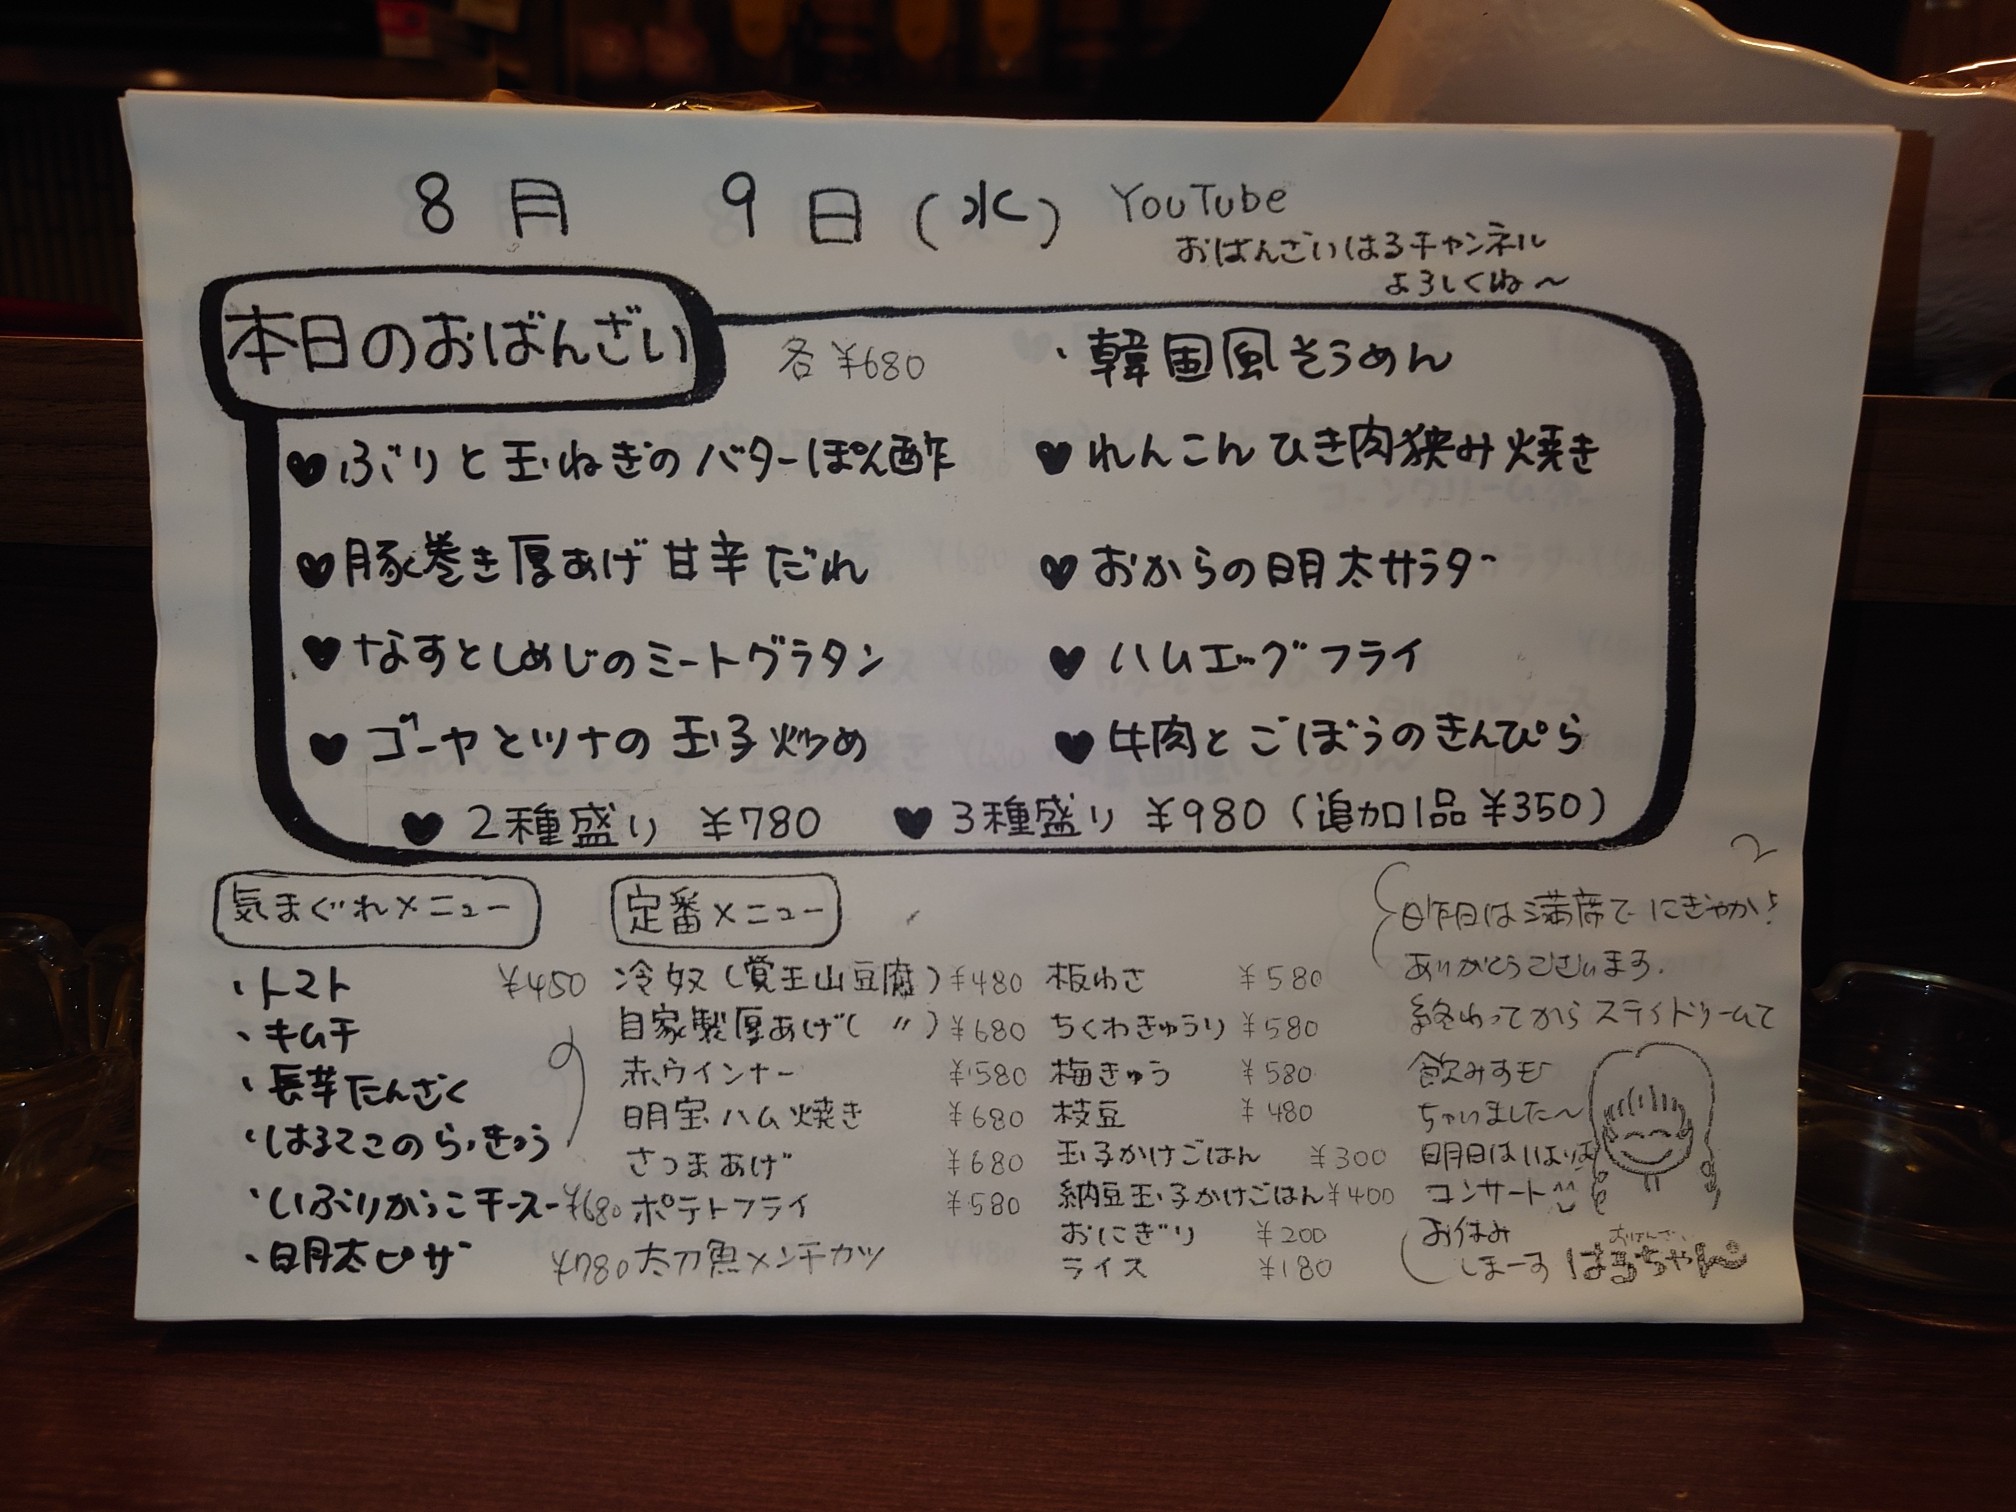 8月 9日(水)
YouTube
おばんざいはるチャンネル
よろしくね〜
本日のおばんざい
各 ¥680
♥ぶりと玉ねぎのバターぽん酢
♥豚巻き厚あげ甘辛だれ
♥なすとしめじのミートグラタン
♥ゴーヤとツナの玉子炒め
・韓国風そうめん
♥れんこんひき肉狭み焼き
♥おからの明太サラダ
♥ハムエッグフライ
♥牛肉とごぼうのきんぴら
♥2種盛り ¥780
♥3種盛り ¥980(追加1品¥350)
気まぐれメニュー
・トマト ¥450
・キムチ
・長芋たんざく
・はるてこのらっきょう
・いぶりがっこチーズ ¥680
・明太ピザ ¥780
定番メニュー
冷奴(覚王山豆腐) ¥480
自家製厚あげ( 〃 ) ¥680
赤ウインナー ¥580
明宝ハム焼き ¥680
さつまあげ ¥680
ポテトフライ ¥580
太刀魚メンチカツ
板わさ ¥580
ちくわきゅうり ¥580
梅きゅう ¥580
枝豆 ¥480
玉子かけごはん ¥300
納豆玉子かけごはん ¥400
おにぎり ¥200
ライス ¥180
昨日は満席でにぎやか!
ありがとうございます.
終わってから
飲みすぎ
ちゃいました〜
明日は
コンサート
お休み
しまーす
おばんざい
はるちゃん